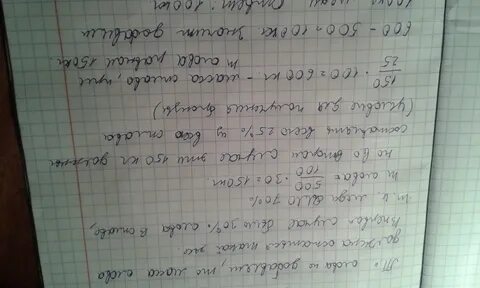 Т.к. олово не добавляем, то масса олово
должна оставаться такой же
В первом случае было 30% олова в сплаве,
т.к. меди было 70%
m олова = 500/100 · 30 = 150 кг.
но во втором случае эти 150 кг должны
составлять всего 25% из всего сплава
(условие для получения бронзы)
150/25 · 100 = 600 кг - масса сплава, при
m олова равной 150 кг.
600 - 500 = 100 кг Значит добавили
100 кг меди Ответ: 100 кг